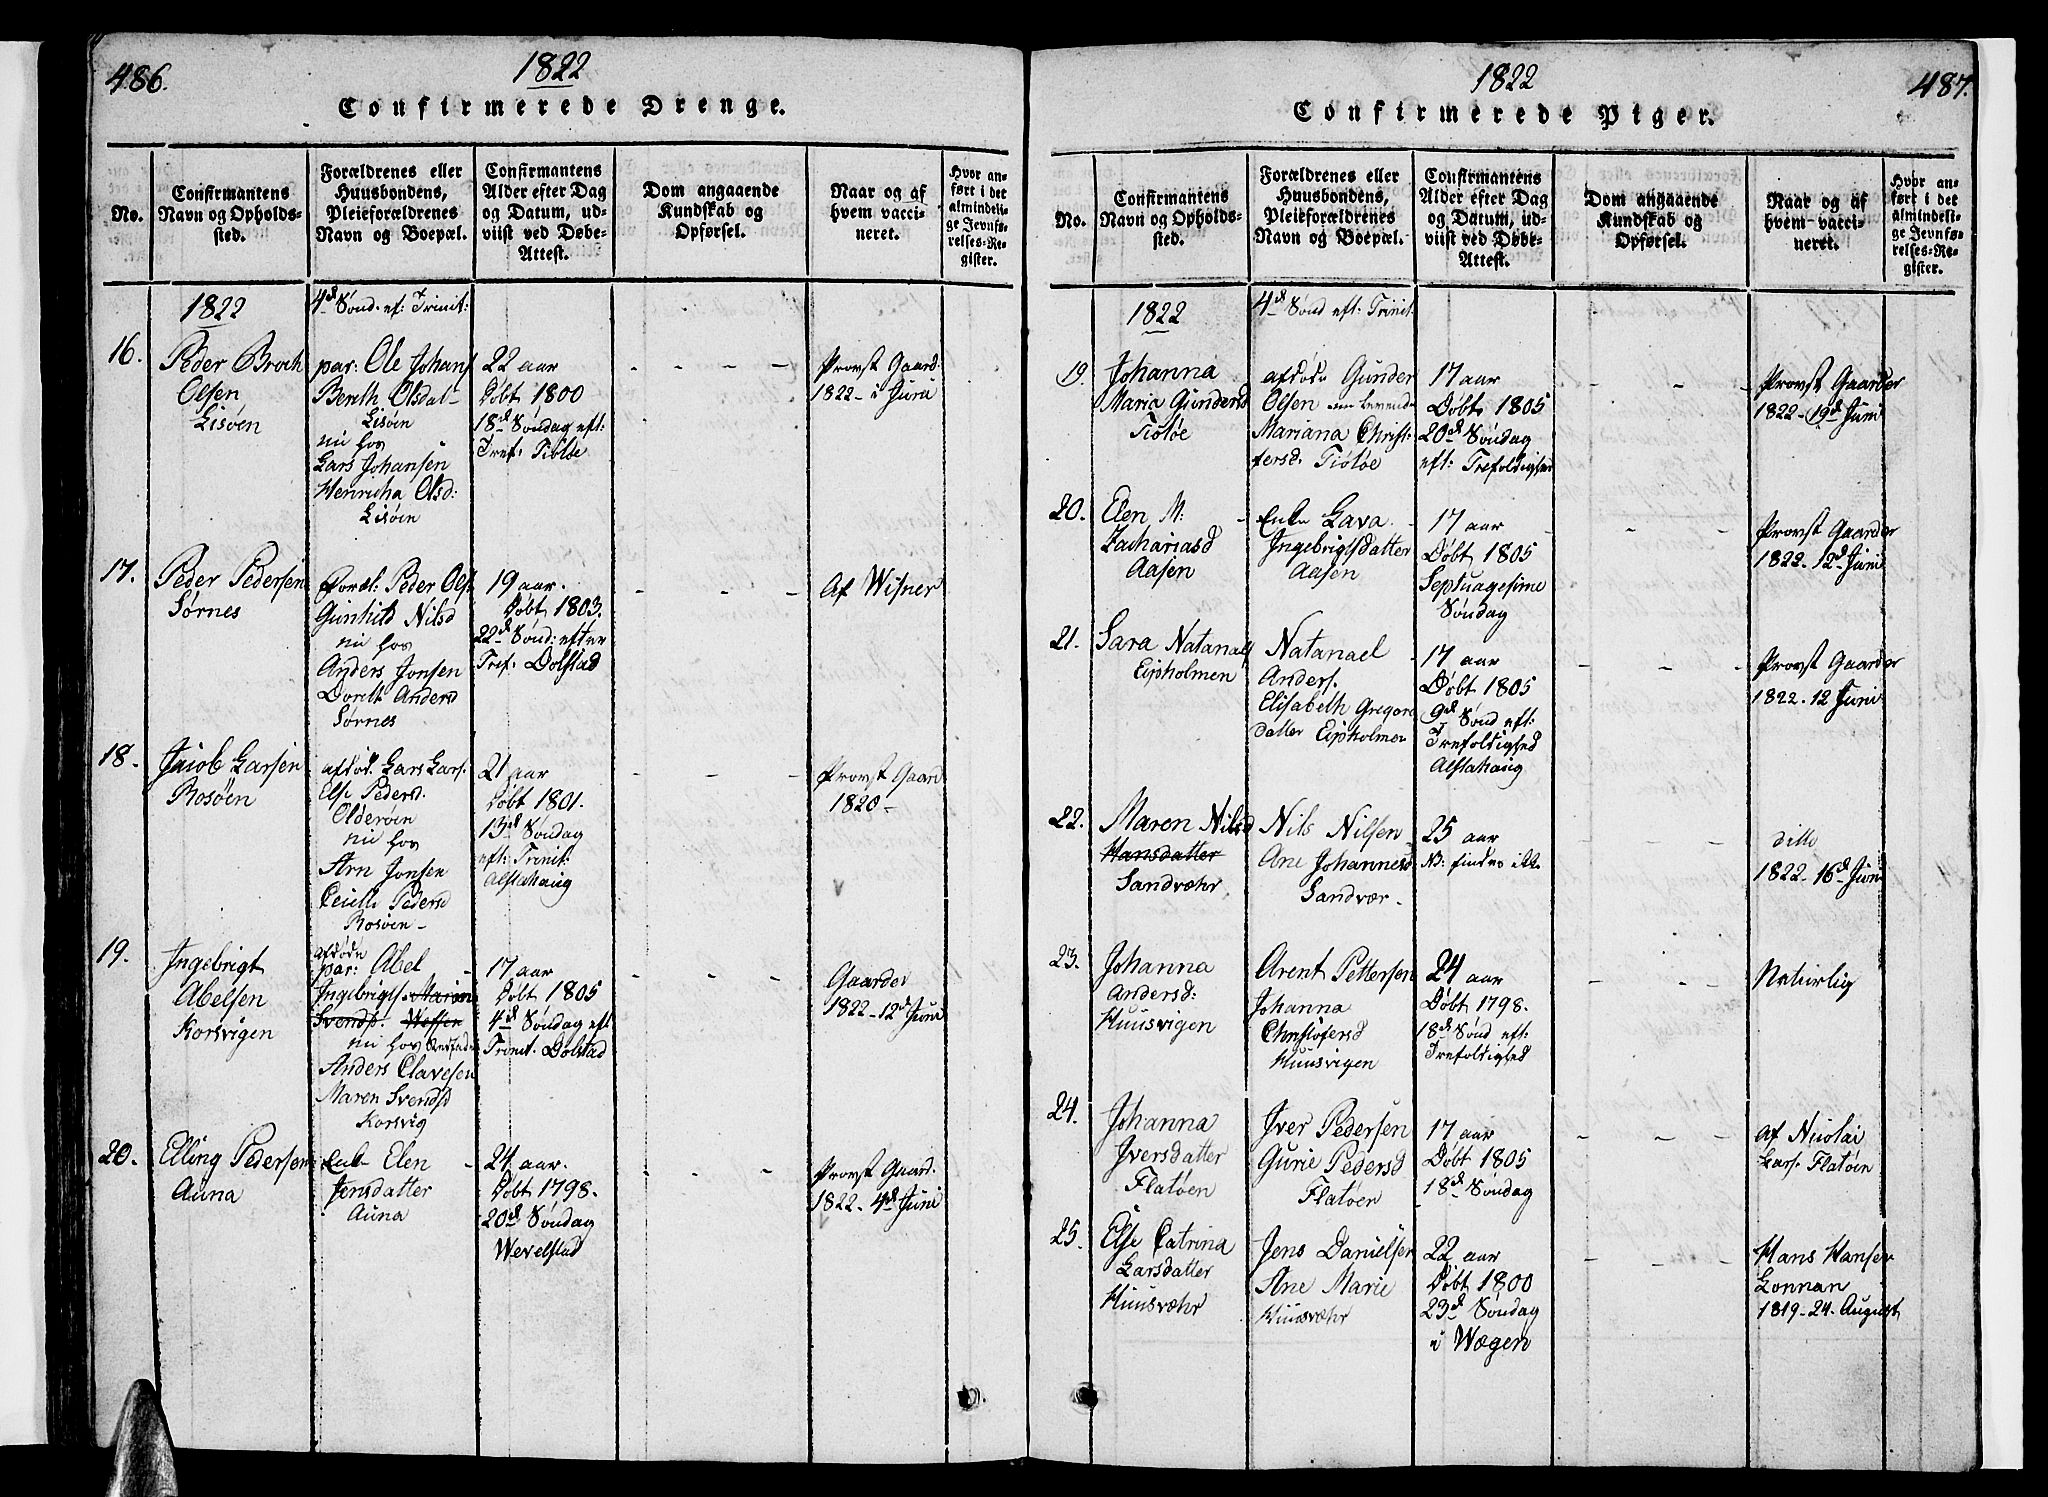 486.
1822
Confirmerede Drenge.
No.
Confirmantens
Navn og Opholds-
sted.
Forældrenes eller
Huusbondens,
Pleieforældrenes
Navn og Boepæl.
Confirmantens
Alder efter Dag
og Datum, ud-
viist ved Døbe-
Attest.
Dom angaaende
Kundskab og
Opførsel.
Naar og af
hvem vacci-
neret.
Hvor an-
ført i det
almindeli-
ge Jevnfø-
relses-Re-
gister.
1822
4d Sønd. ef: Trinit:
16.
Peder Broch
Olsen
Lisøen
par: Ole Johans
Bereth Olsdat-
Lisøen
nu hos
Lars Johansen
Henricha Olsd:
Lisøen
22 aar
Døbt 1800
18d Søndag eft:
Tref: Tiøtøe
- - - -
Provst Gaard:
1822- i Juni
17.
Peder Pedersen
Sørnes
foræl: Peder Ols
Gunhild Nilsd
nu hos
Anders Jonsen
Doreth Andersd
Sørnes
19 aar.
Døbt 1803.
22d Sønd: efter
Tref: Dolstad
- - -
Af Wisner
18.
Jacob Larsen
Rosøen
afdød. Lars Lars.
Else Pedersd.
Olderøen
nu hos
Arn Jonsen
Ceicelle Pedersd
Rosøen-
21 aar
Døbt 1801.
13d Søndag
eft: Trinit:
Alstahaug
- - -
Provst Gaard
1820-
19.
Ingebrigt
Abelsen
Korsvigen
afdøde
par: Abel
Ingebrigts. Maren
Svends. Wefsen
nu hos
Anders Clavesen
Maren Svendsd
Korsvig
17 aar
Døbt 1805
4d Søndag eft
Trinit. Dolstad
- - -
Gaarder
1822-12d Juni
20.
Elling Pedersen
Auna
Enk- Elen
Jensdatter
Auna
24 aar.
Døbt 1798.
20d Søndag
Wevelstad
- - -
Provst Gaard.
1822. 4d Juni
487.
1822
Confirmerede Piger.
No.
Confirmantens
Navn og Opholds-
sted.
Forældrenes eller
Huusbondens,
Pleieforældrenes
Navn og Boepæl.
Confirmantens
Alder efter Dag
og Datum, ud-
viist ved Døbe-
Attest.
Dom angaaende
Kundskab og
Opførsel.
Naar og af
hvem vacci-
neret.
Hvor an-
ført i det
almindeli-
ge Jevnfø-
relses-Re-
gister.
1822
4d Sønd eft: Trinit.
19.
Johanna
Maria Gundersd
Tiøtøe
afdøde Gunder
Olsen
Mariana Christ-
fersd. Tiøtøe
17 aar
Døbt 1805
20d Søndag
eft: Trefoldighed
- - -
Provst Gaarder
1822-19d Juni
20.
Elen M:
Zachariasd
Aasen
Enk- Lava
Ingebrigtsdatter
Aasen
17 aar
Døbt 1805
Septuagesime
Søndag
- - -
Provst Gaarder
1822. 12d Juni
21.
Sara Natanaels
Eipholmen
Natanael
Anders.
Elisabeth Gregors
datter Eipholmen
17 aar
Døbt 1805
9d Sønd eft:
Trefoldighed
Alstahaug
- - -
Provst Gaarder
1822. 12 Juni
22.
Maren Nilsd
Hansdatter
Sandvæhr
Nils Nilsen
Ane Johannesd
Sandvær-
25 aar
NB: findes ikke
ditto
1822-16d Juni
23.
Johanna
Andersd:
Huusvigen
Arent Pettersen
Johanna
Christofersd
Huusvigen
24 aar
Døbt 1798.
18d Sønd eft:
Trefoldighed
- - -
Naturlig
24.
Johanna
Iversdatter
Flatøen
Iver Pedersen
Gurie Pedersd
Flatøen
17 aar
Døbt 1805
18d Søndag
- - -
af Nicolai
Lars. Flatøen
25.
Else Catrina
Larsdatter
Huusvæhr
Jens Danielsen
Ane Marie
Huusvæhr
22 aar
Døbt 1800
23d Søndag
i Wægen
- - -
Hans Hansen
Lonnan
1819-24. August